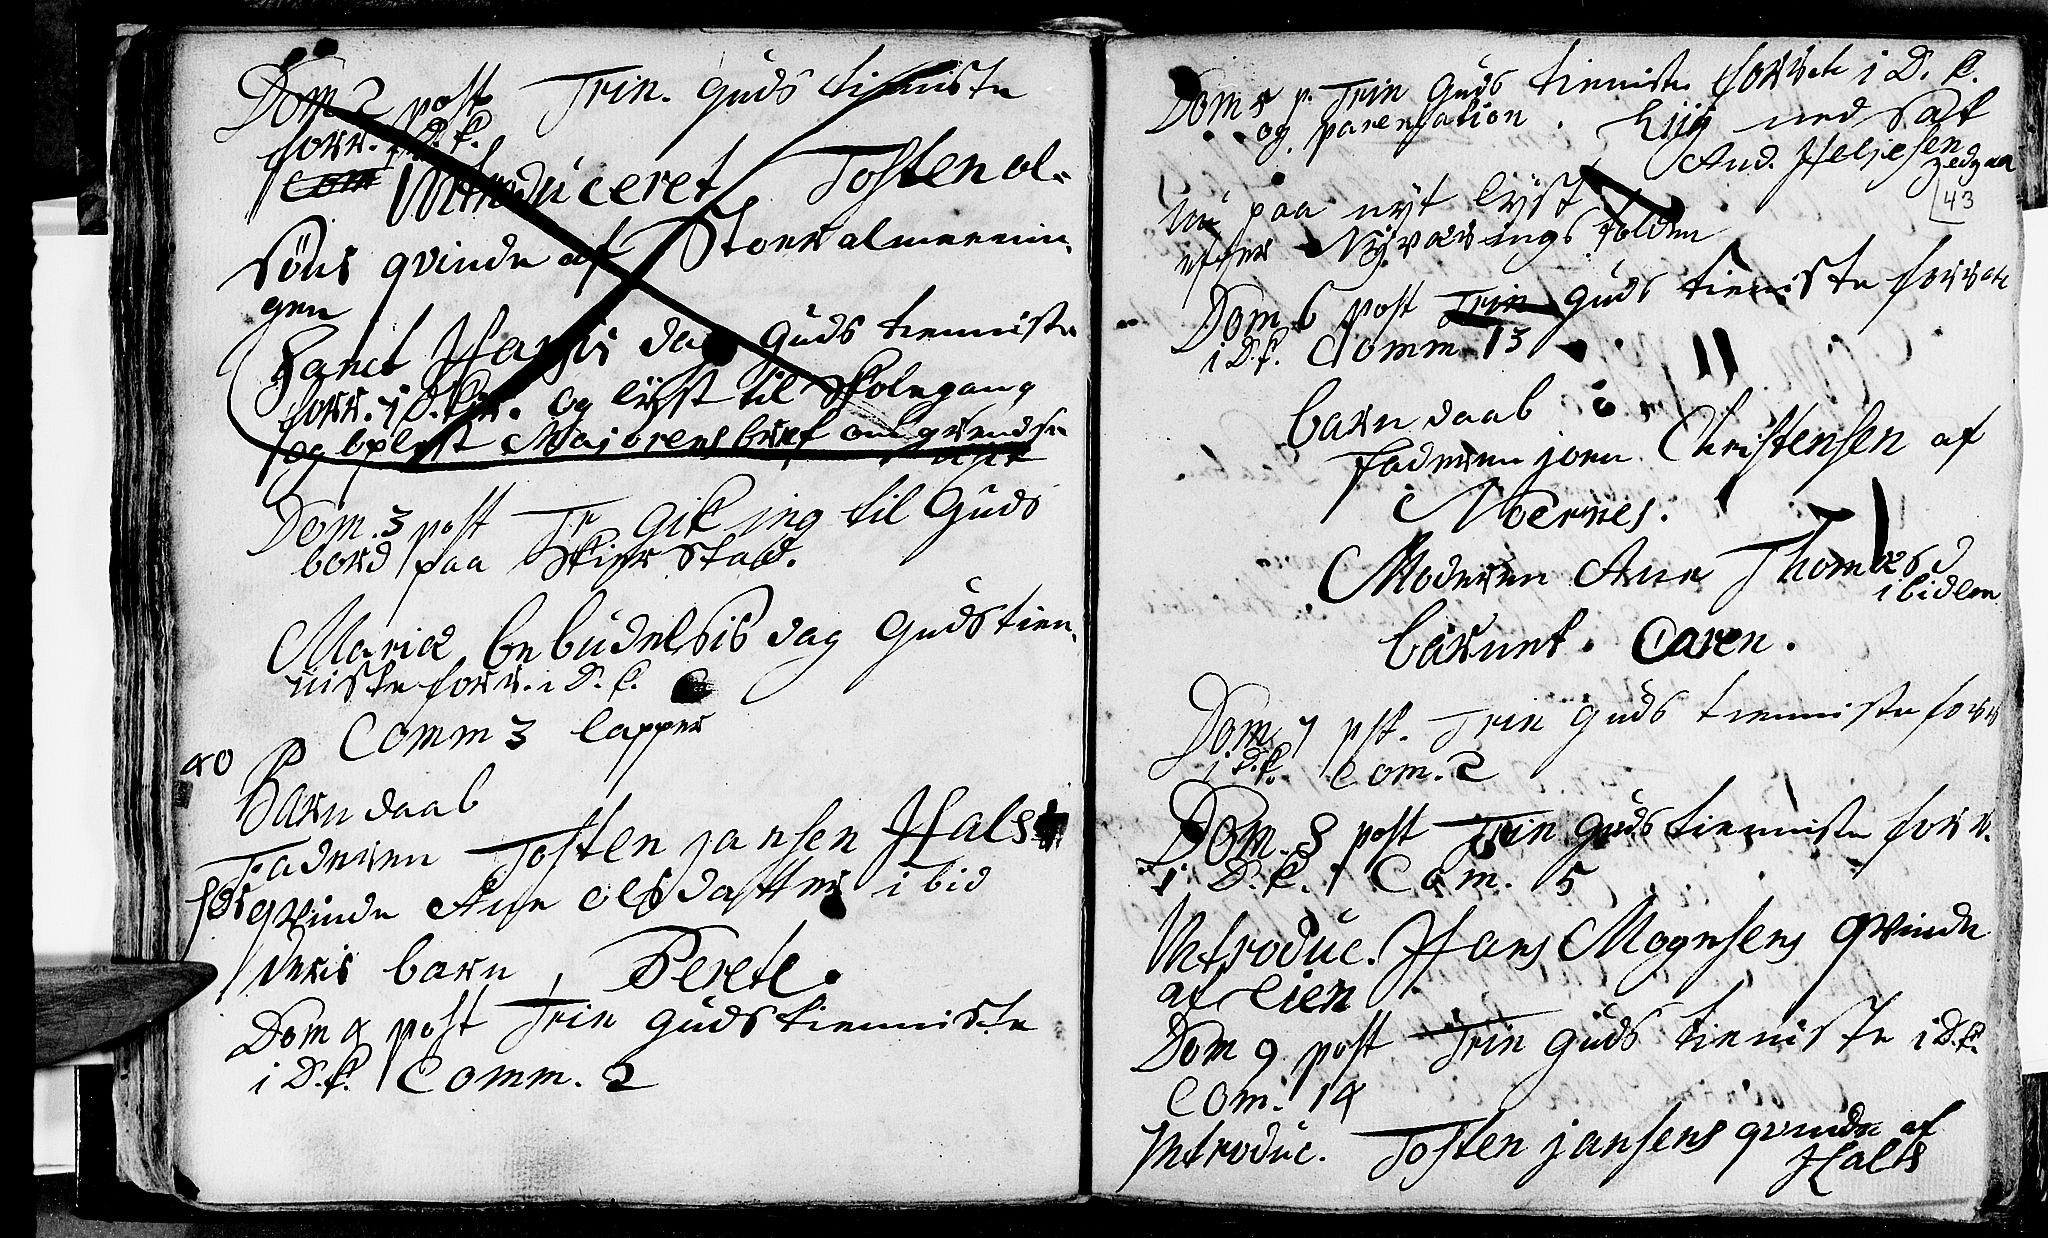 Dom 2 post Trin. Guds tienniste
forr. i D. K.
Com Introduceret Tosten ol-
søns qvinde af Storr almennin-
gen
Sanct Hansis dag Guds tienniste
forr. i D. Kir. og lyst til Skolegang
og oplæst Majorens bref om grendse
Dom. 3 post Tr gik ieg til Guds
bord paa Skierstad.
Mariæ bebudelsis dag Gudstien-
niste forr. i D. K.
Comm 3 lapper
40
Barn daab
Faderen Tosten jansen Hals
qvinde Ane olsdatter ibid
deris barn, Berete.
Dom 4 post Trin Guds tienniste
i D. K. Comm. 2
Dom 5 p. Trin Guds tienniste forret i D. K.
og parentation. Liig ned sat
And. Heljesen
43
nu paa nyt lyst
efter Nyværings tolden
Dom 6 post Trin Guds tienniste forret
i D. K. Comm 13
barn daab
Faderen joen Christensen af
Noernes.
Moderen Ane Thomæsd
ibidem
barnet. Caren.
Dom 7 pst. Trin Guds tienniste forr
i D. K. Com. 2
Dom. 8 post Trin Guds tienniste forr.
i D. K. Com. 5
Introduc. Hans Mognsens qvinde
af Lien
Dom 9 post Trin Guds tieniste i D. K.
Com. 14
Introduc. Tosten jansens qvinde af
Hals